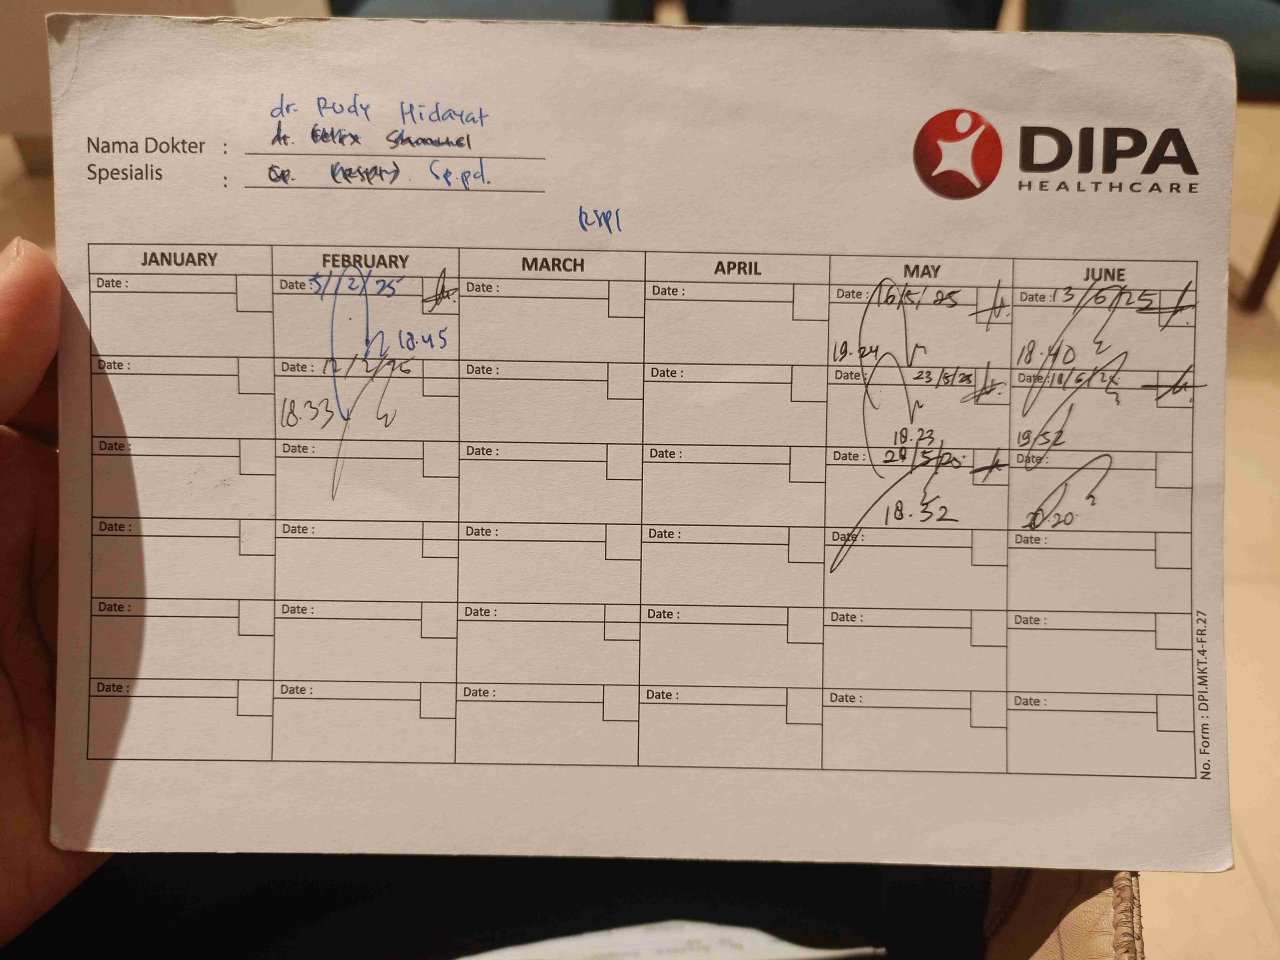 dr. Rudy Hidayat
Nama Dokter :
Spesialis : Sp.pd.
DIPA
HEALTHCARE
JANUARY FEBRUARY MARCH APRIL MAY JUNE
Date : Date : 5/2/25 Date : Date : Date : 16/5/25 Date : 13/6/25
18.45 19.24 18.40
Date : Date : 12/2/25 Date : Date : Date : 23/5/25 Date : 18/6/25
18.33 18.23 19.52
Date : Date : Date : Date : Date : 28/5/25 Date :
18.32 20.20
Date : Date : Date : Date : Date : Date :
Date : Date : Date : Date : Date : Date :
Date : Date : Date : Date : Date : Date :
No. Form : DPI.MKT.4-FR.27